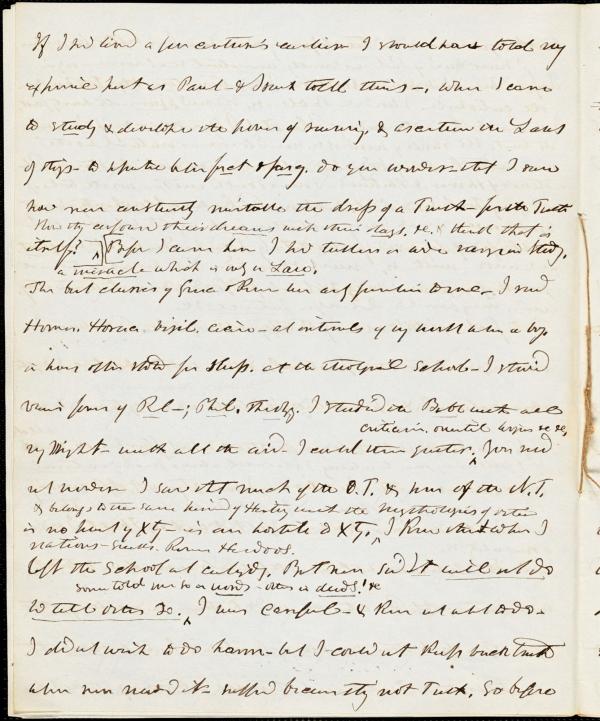 If I had lived a few centuries earlier I should have told my
experience just as Paul - & such told theirs -, when I came
to study & develope the power of reasoning, & ascertain the Laws
of things - to separate between fact & fancy. do you wonder that I saw
how men constantly mistake the dress of a Truth - for the Truth
how they confound their dreams with their days, &c. & think that is
itself? Before I came here I had
a miracle which is only a Law.
The best classics of Greece & Rome were familiar to me - I read
Homer. Horace. Virgil. Cicero - at intervals of my work when a boy
in hours often stolen for sleep. at the theological School - I studied
various forms of Rel -; Phil. Theology. I studied the Bible with all
criticism. oriental &c &c,
my Might - with all the aid I could then gather. You need
not wonder I saw that much of the O.T. & some of the N.T.
& belongs to the same kind of History with the Mythologies of other
is no part of Xty - is even hostile to Xty, I knew that when I
nations - Greeks. Romans Hindoos.
left the School at Cambridge. But men said It will not do
some told me so in words - others in deeds! &c
to tell others so. I was careful - & knew not what to do -
I did not wish to do harm - but I could not keep back truth
when men needed it - suffered because they not Truth. So before